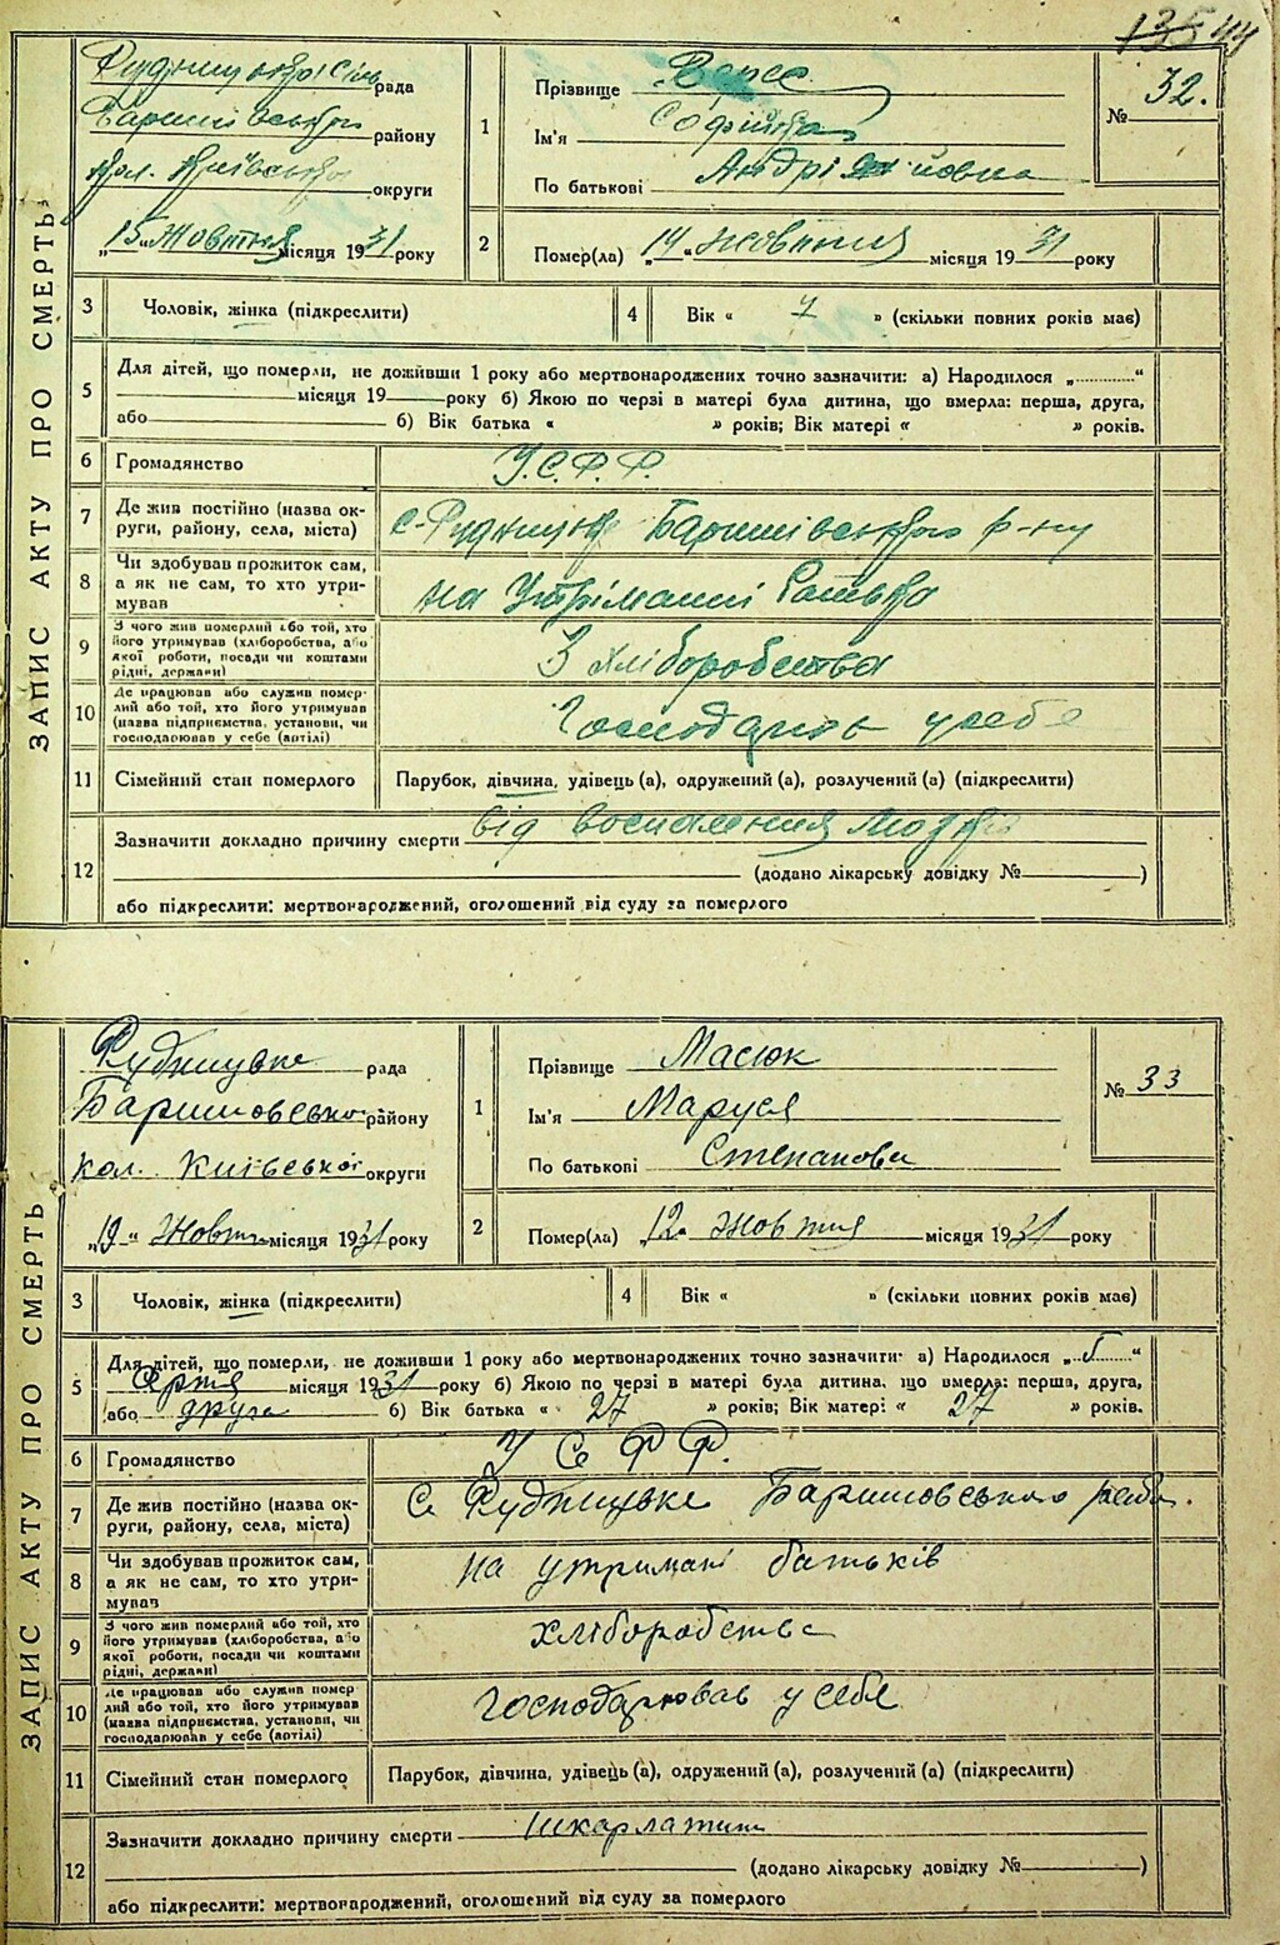 135 44
ЗАПИС АКТУ ПРО СМЕРТЬ
Рудницької Сіль рада
Баришівського району
кол. Київської округи
„15“ Жовтня місяця 1931 року
1
Прізвище Верес
Ім'я Софійка
По батькові Андріййовна
№ 32.
2
Помер(ла) „14“ жовтня місяця 1931 року
3 Чоловік, жінка (підкреслити)
4 Вік « 7 » (скільки повних років має)
5 Для дітей, що померли, не доживши 1 року або мертвонароджених точно зазначити: а) Народилося „ “
місяця 19 року б) Якою по черзі в матері була дитина, що вмерла: перша, друга,
або б) Вік батька « » років; Вік матері « » років.
6 Громадянство У.С.Р.Р.
7 Де жив постійно (назва ок-
руги, району, села, міста) с-Рудницьке Баришівського р-ну
8 Чи здобував прожиток сам,
а як не сам, то хто утри-
мував на Утріманні батька
9 З чого жив померлий або той, хто
його утримував (хліборобства, або
якої роботи, посади чи коштами
рідні, держави) З хліборобства
10 Де працював або служив помер-
лий або той, хто його утримував
(назва підприємства, установи, чи
господарював у себе (артілі) Господарює у себе
11 Сімейний стан померлого Парубок, дівчина, удівець (а), одружений (а), розлучений (а) (підкреслити)
12 Зазначити докладно причину смерти від воспаления мозків
(додано лікарську довідку № )
або підкреслити: мертвонароджений, оголошений від суду за померлого
ЗАПИС АКТУ ПРО СМЕРТЬ
Рудницьке рада
Баришовсько району
кол. Київської округи
„19“ Жовтн місяця 1931 року
1
Прізвище Масюк
Ім'я Маруся
По батькові Степанови
№ 33
2
Помер(ла) „12“ Жовтня місяця 1931 року
3 Чоловік, жінка (підкреслити)
4 Вік « » (скільки повних років має)
5 Для дітей, що померли, не доживши 1 року або мертвонароджених точно зазначити: а) Народилося „ “
Серпня місяця 1931 року б) Якою по черзі в матері була дитина, що вмерла: перша, друга,
або друга б) Вік батька « 27 » років; Вік матері « 27 » років.
6 Громадянство У С Р Р.
7 Де жив постійно (назва ок-
руги, району, села, міста) С Рудницьке Баришовського
8 Чи здобував прожиток сам,
а як не сам, то хто утри-
мував на утримані батьків
9 З чого жив померлий або той, хто
його утримував (хліборобства, або
якої роботи, посади чи коштами
рідні, держави) хліборобства
10 Де працював або служив помер-
лий або той, хто його утримував
(назва підприємства, установи, чи
господарював у себе (артілі) господарював у себе
11 Сімейний стан померлого Парубок, дівчина, удівець (а), одружений (а), розлучений (а) (підкреслити)
12 Зазначити докладно причину смерти шкарлатини
(додано лікарську довідку № )
або підкреслити: мертвонароджений, оголошений від суду за померлого